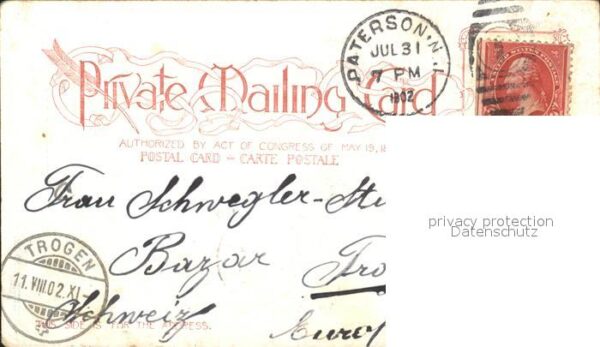 PATERSON, N.
JUL 31
7 PM
1902
Private Mailing Card
AUTHORIZED BY ACT OF CONGRESS OF MAY 19, 18
POSTAL CARD – CARTE POSTALE
Frau Schwegler-
privacy protection
Datenschutz
TROGEN
11.VIII.02.XI
Bazar Tro
Schweiz
THIS SIDE IS FOR THE ADDRESS.
Euro